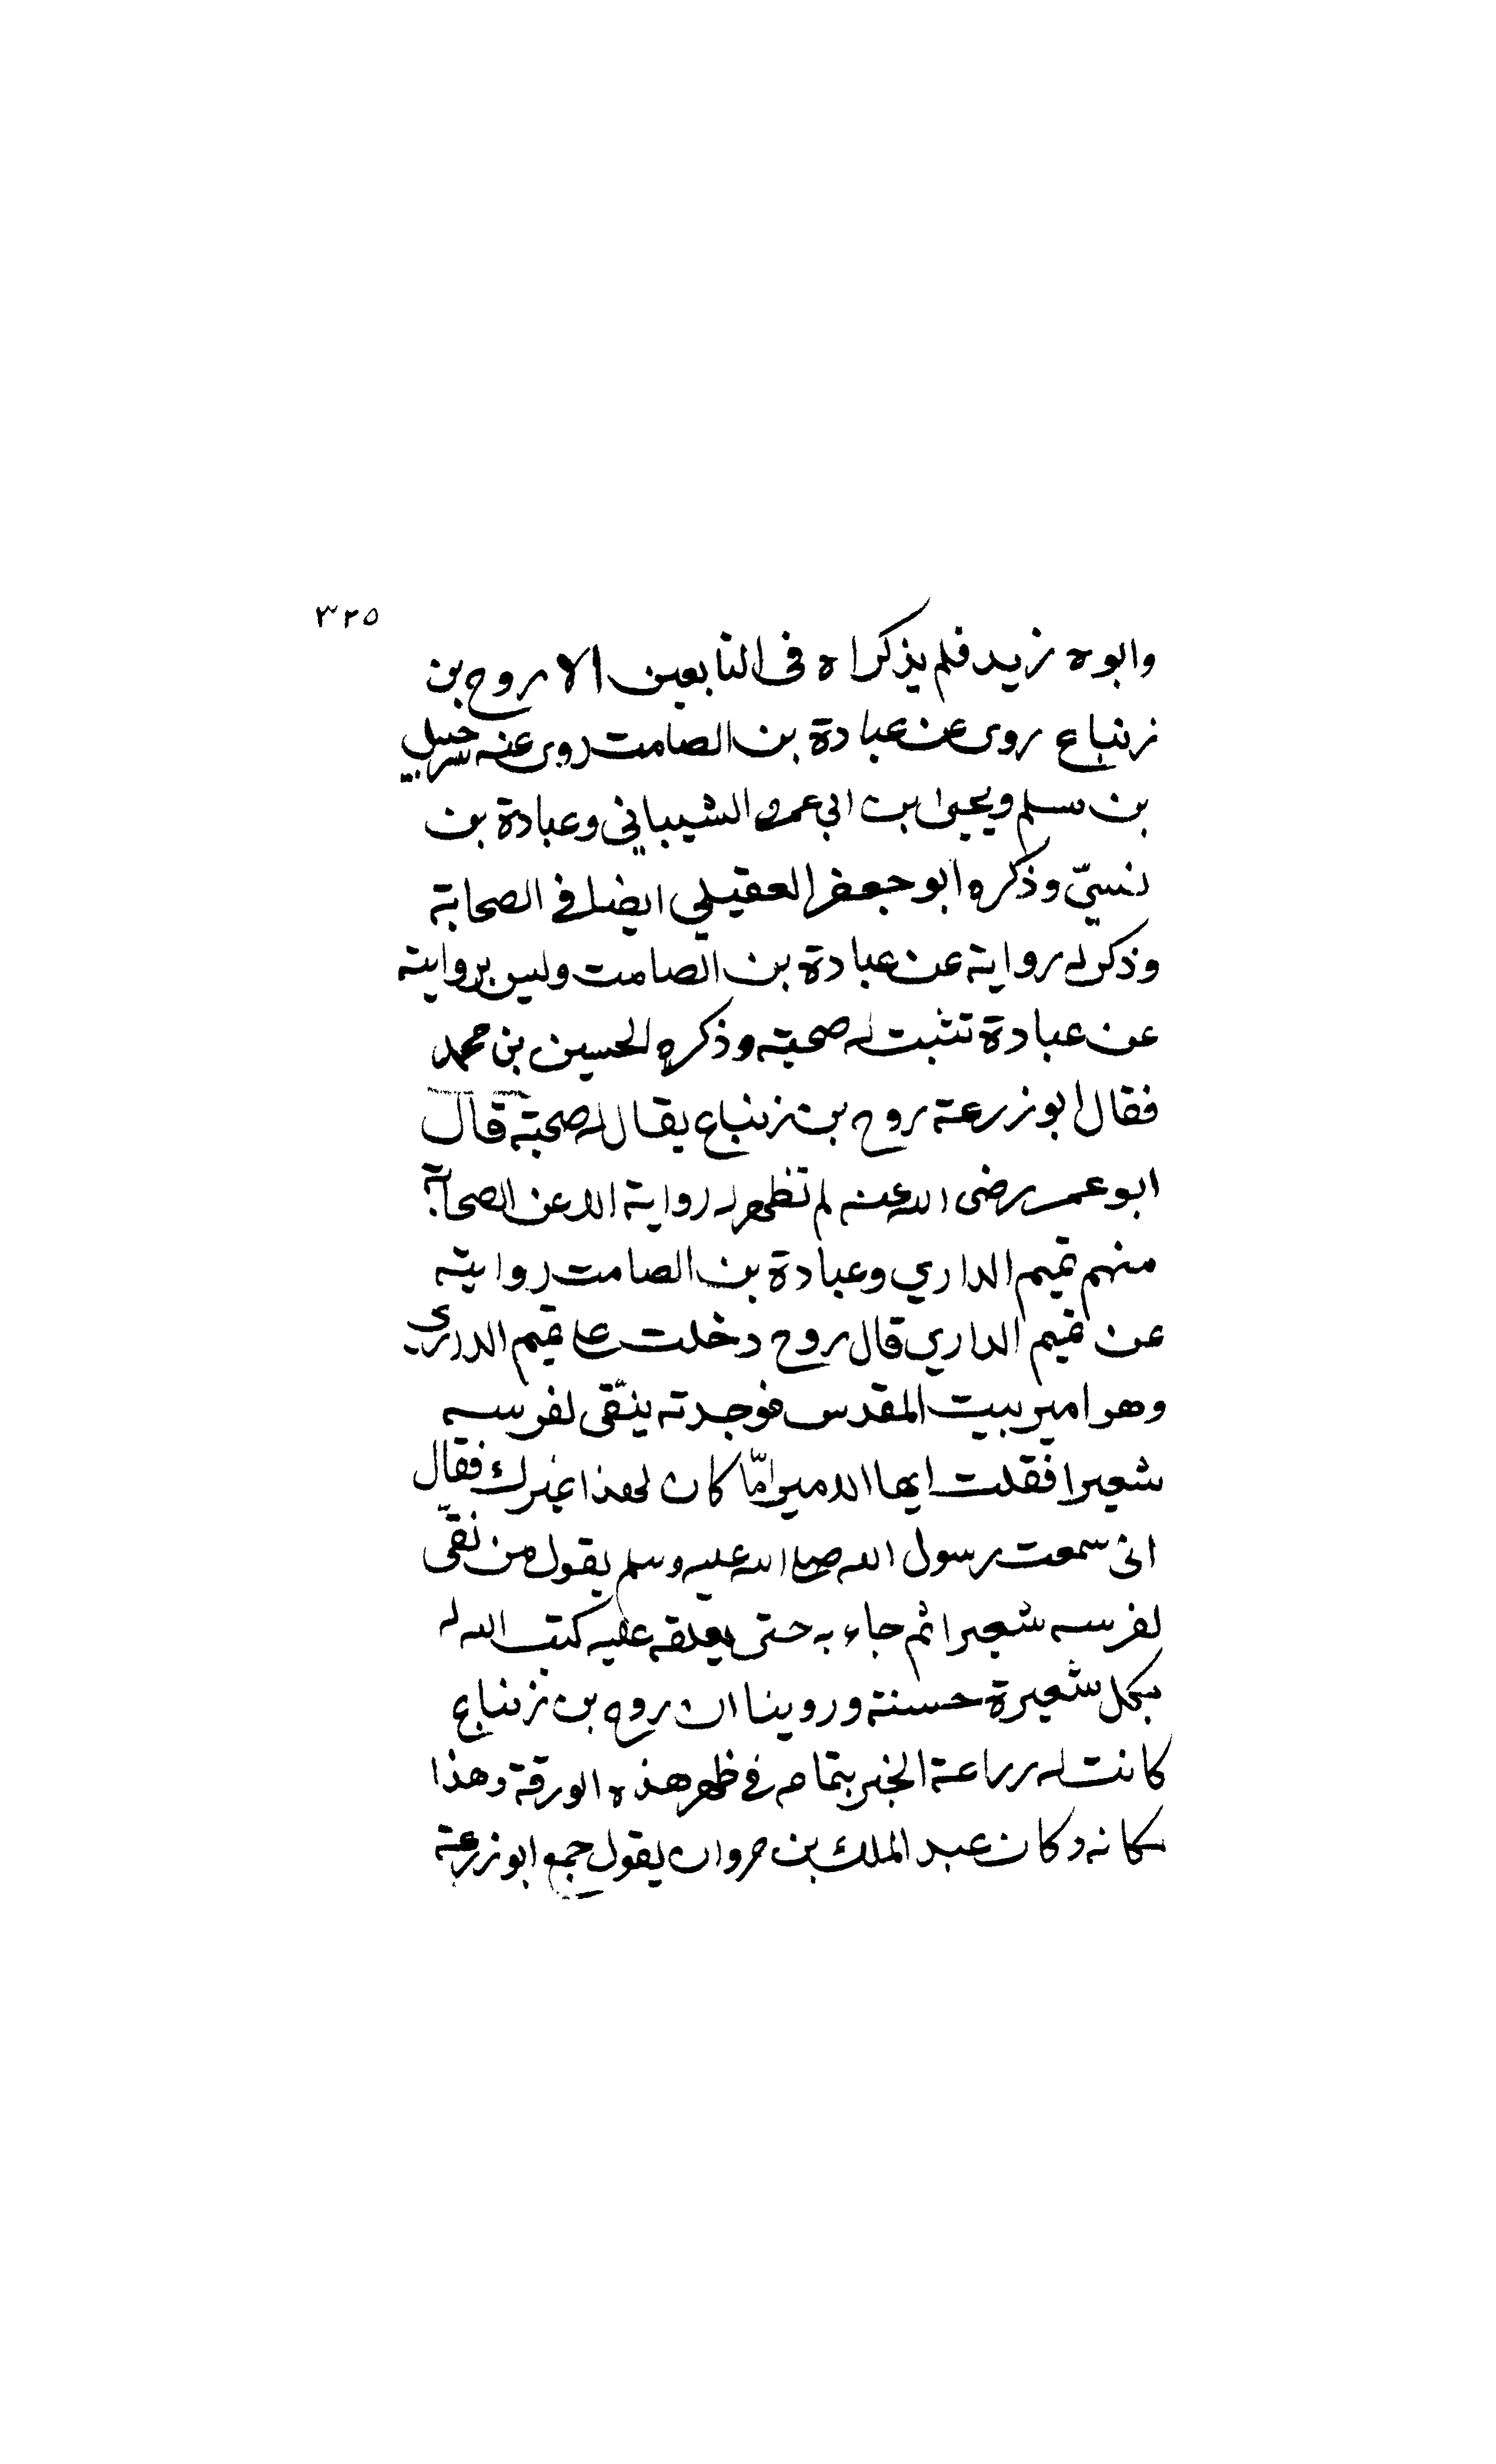 ٣٢٥
وابوه زيد فلم يذكراه فى التابعين الا روح بن
زنباع روى عن عبادة بن الصامت روى عنه شرحبيل
بن مسلم ويحيى بن ابي عمرو الشيباني وعبادة بن
نسيّ وذكره ابو جعفر العقيلي ايضا في الصحابة
وذكر له رواية عن عبادة بن الصامت وليس بروايته
عن عبادة تثبت له صحبته وذكره الحسين بن محمد
فقال ابو زرعة روح بن زنباع يقال له صحبة قال
ابو عمر رضى الله عنه لم تظهر له رواية الا عن الصحابة
منهم تميم الداري وعبادة بن الصامت روايته
عن تميم الداري قال روح دخلت على تميم الداري
وهو امير بيت المقدس فوجدته ينقّى لفرسه
شعيرا فقلت ايها الامير امّا كان لهذا غيرك فقال
انى سمعت رسول الله صلى الله عليه وسلم يقول من نقّى
لفرسه شعيرا ثم جاء به حتى يعلقه عليه كتب الله له
بكل شعيرة حسنة وروينا ان روح بن زنباع
كانت له زراعة الخبر بتمامه في ظهر هذه الورقة وهذا
مكانه وكان عبد الملك بن مروان يقول جمع ابو زرعة